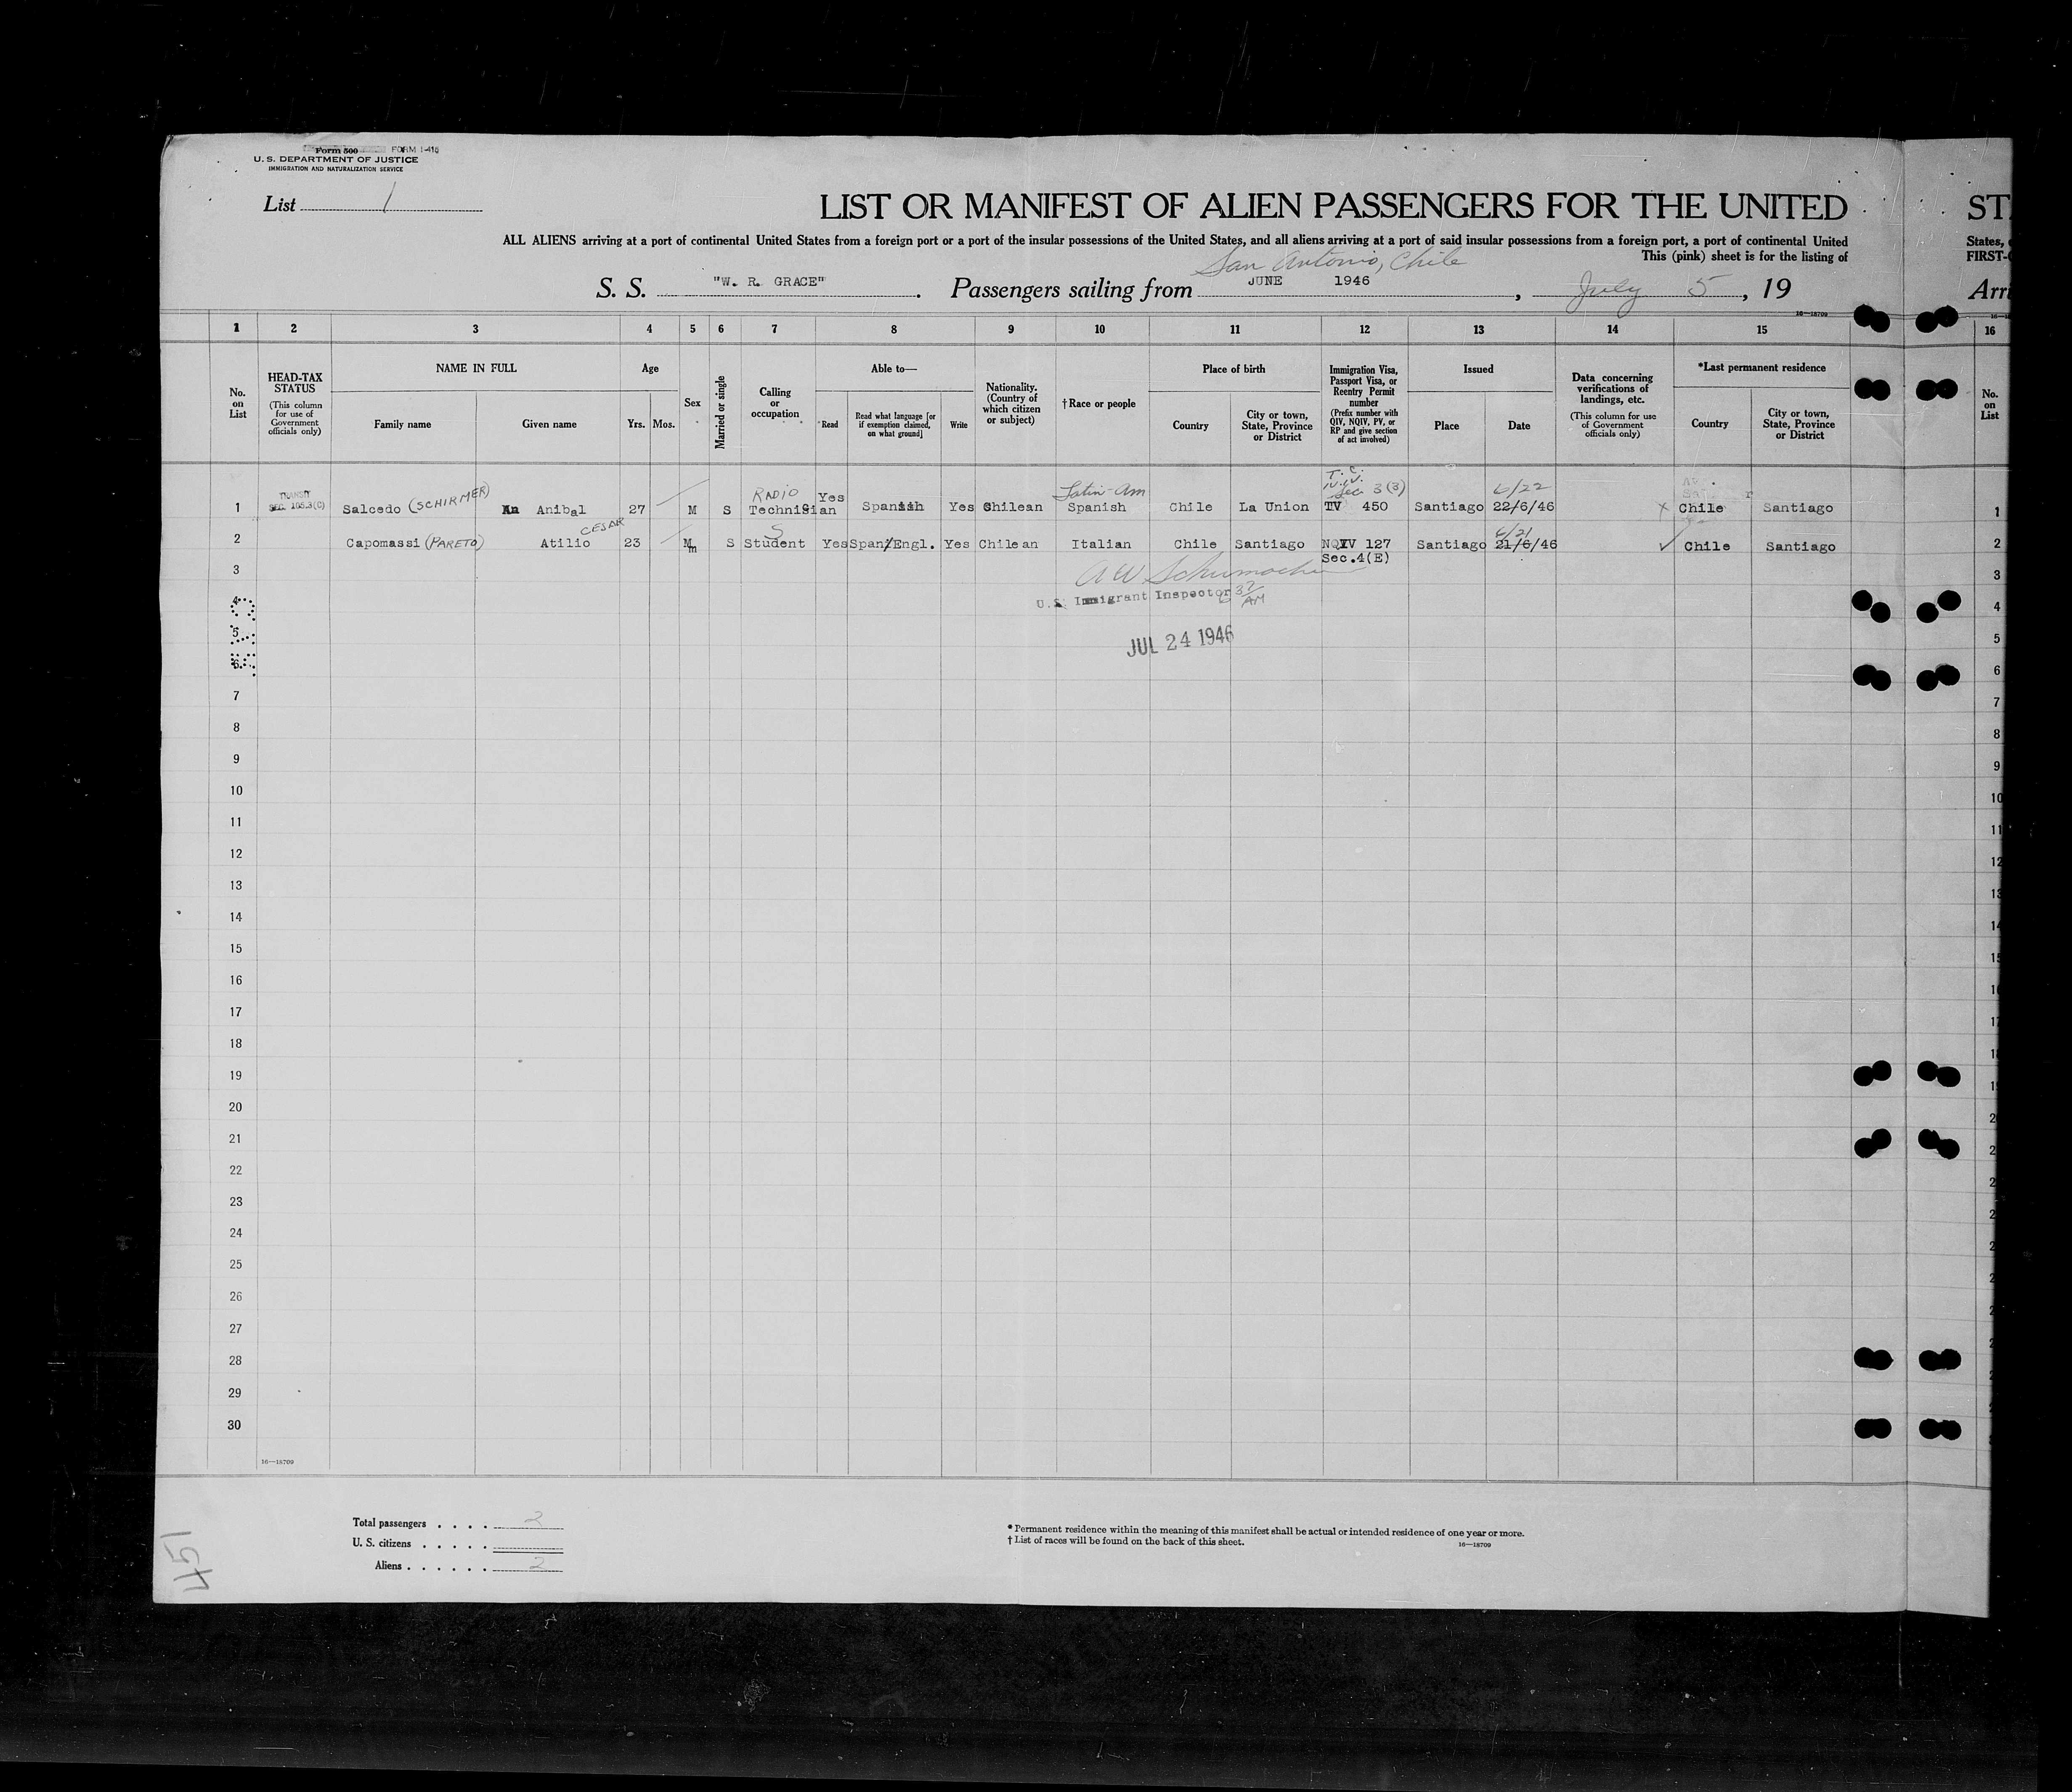 Form 500 FORM I-415
U. S. DEPARTMENT OF JUSTICE
IMMIGRATION AND NATURALIZATION SERVICE
List 1
LIST OR MANIFEST OF ALIEN PASSENGERS FOR THE UNITED
ST
ALL ALIENS arriving at a port of continental United States from a foreign port or a port of the insular possessions of the United States, and all aliens arriving at a port of said insular possessions from a foreign port, a port of continental United
States,
This (pink) sheet is for the listing of
FIRST-
San Antonio, Chile
S. S. "W. R. GRACE" . Passengers sailing from JUNE 1946 , July 5 , 19
Arri
16—18709
1 2 3 4 5 6 7 8 9 10 11 12 13 14 15 16
No. on List
HEAD-TAX STATUS (This column for use of Government officials only)
NAME IN FULL
Family name Given name
Age
Yrs. Mos.
Sex
Married or single
Calling or occupation
Able to—
Read
Read what language [or if exemption claimed, on what ground]
Write
Nationality. (Country of which citizen or subject)
†Race or people
Place of birth
Country
City or town, State, Province or District
Immigration Visa, Passport Visa, or Reentry Permit number (Prefix number with QIV, NQIV, PV, or RP and give section of act involved)
Issued
Place Date
Data concerning verifications of landings, etc. (This column for use of Government officials only)
*Last permanent residence
Country
City or town, State, Province or District
No. on List
TRANSIT RADIO Yes Latin-Am Sec 3(3) 6/22
1 SEC. 105.3(C) Salcedo (SCHIRMER) An Anibal 27 M S Technician Spanish Yes Chilean Spanish Chile La Union TV 450 Santiago 22/6/46 x Chile Santiago 1
CESAR S 6/21
2 Capomassi (PARETO) Atilio 23 M S Student Yes Span/Engl. Yes Chilean Italian Chile Santiago NQIV 127 Santiago 21/6/46 ✓ Chile Santiago 2
Sec.4(E)
3 A W Schumacher 3
4 U.S. Immigrant Inspector 37 AM 4
5 JUL 24 1946 5
6 6
7 7
8 8
9 9
10 10
11 11
12 12
13 13
14 14
15 15
16 16
17 17
18 18
19 19
20
21
22
23
24
25
26
27
28
29
30
16—18709
Total passengers . . . . 2
U. S. citizens . . . . .
Aliens . . . . . . 2
* Permanent residence within the meaning of this manifest shall be actual or intended residence of one year or more.
† List of races will be found on the back of this sheet.
16—18709
451